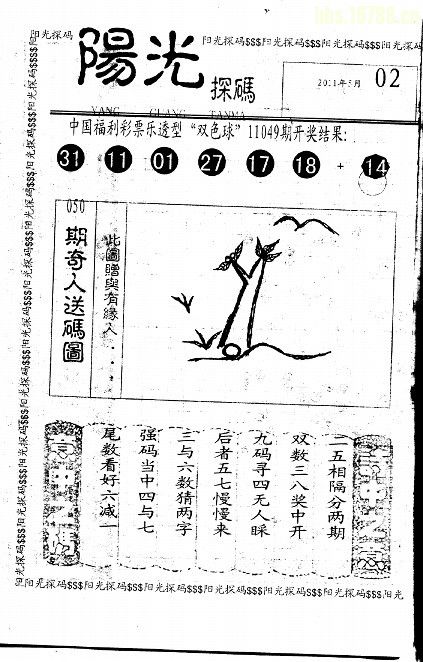 bbs.16788.cn
阳光探码
阳光探码$$$阳光探码$$$阳光探码$$$阳光探码
陽光
探碼
2011年5月
02
YANG GUANG TANMA
中国福利彩票乐透型“双色球”11049期开奖结果:
31 11 01 27 17 18 + 14
050
期奇人送碼圖
此圖贈與有緣人....
二五相隔分两期
双数三八奖中开
九码寻四无人睬
后者五七慢慢来
三与六数猜两字
强码当中四与七
尾数看好六减一
阳光探码$$$阳光探码$$$阳光探码$$$阳光探码$$$阳光探码$$$阳光探码$$$阳光